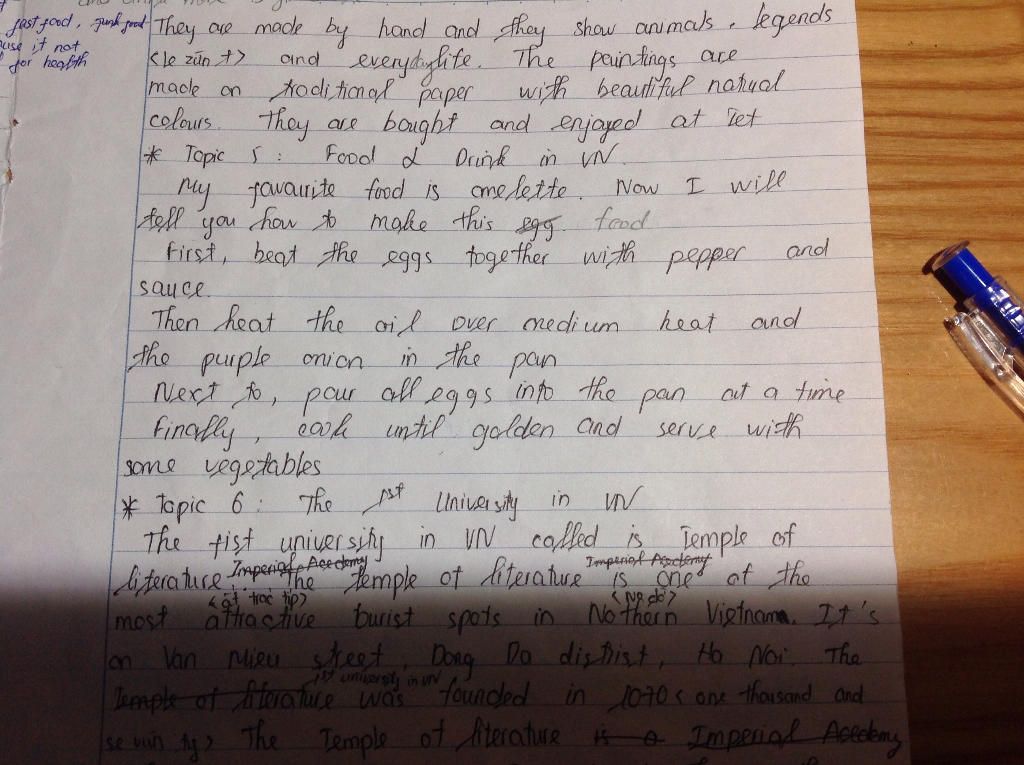 fast food, junk food
use it not
for health
They are made by hand and they show animals, legends
<le zừn t> and everyday life. The paintings are
made on traditional paper with beautiful natural
colours. They are bought and enjoyed at Tet
* Topic 5 : Food & Drink in VN.
My favourite food is omelette. Now I will
tell you how to make this egg. food
First, beat the eggs together with pepper and
sauce.
Then heat the oil over medium heat and
the purple onion in the pan
Next to, pour all eggs into the pan at a time
Finally, cook until golden and serve with
some vegetables
* Topic 6 : The 1st University in VN
The fist university in VN called is Temple of
Imperial Acedemy Imperial Acedemy
literature. The temple of literature is one of the
<át trac tip> <No dơ>
most attractive turist spots in Nothern Vietnam. It's
on Van Mieu street, Dong Da distrist, Ha Noi. The
1st university in VN
Temple of literature was founded in 1070 < one thousand and
se vừn ty> The Temple of literature is a Imperial Acedemy